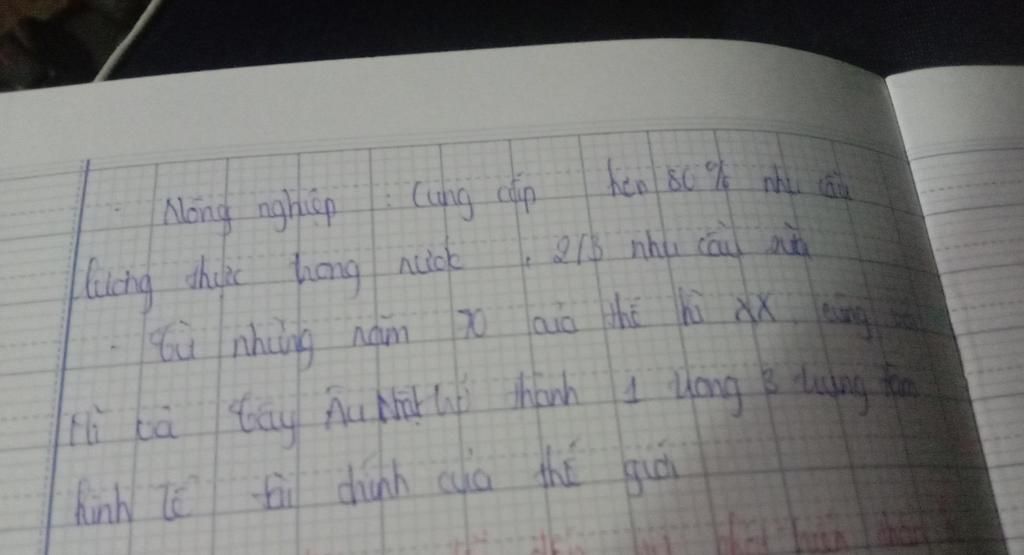 - Nông nghiệp : Cung cấp hơn 80% nhu cầu
lương thực trong nước , 2/3 nhu cầu sữa
- Từ những năm 70 của thế kỉ XX cùng với
Mĩ và Tây Âu Nhật trở thành 1 trong 3 trung tâm
kinh tế tài chính của thế giới